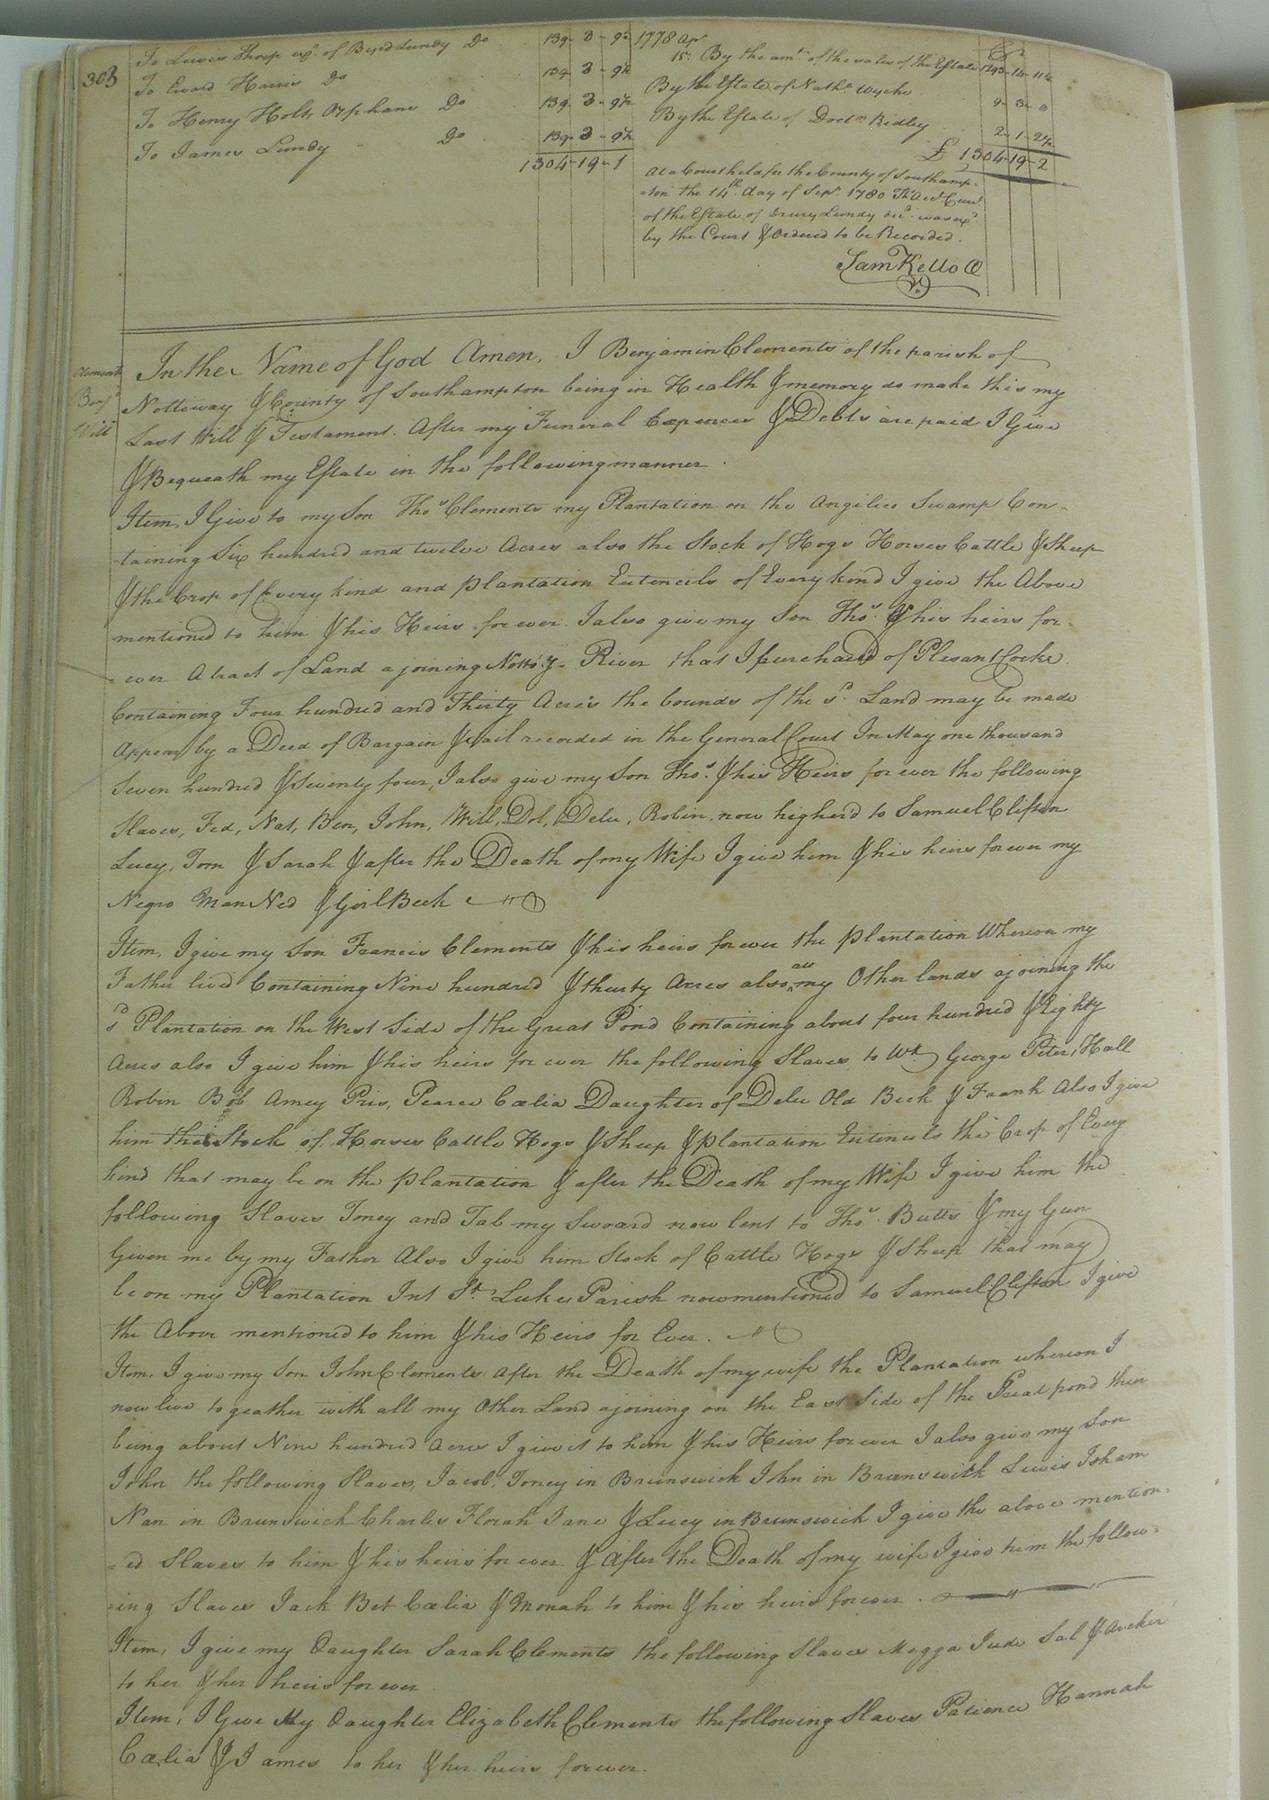 303
To Lewis Thorp exr. of Byrd Lundy Do 139 - 3 - 9½
To Edward Harris Do 139 - 3 - 9½
To Henry Holts Orphans Do 139 - 3 - 9½
To James Lundy Do 139 - 3 - 9½
1304 - 19 - 1
1778 Apr £
15. By the amt. of the sales of the Estate 1293 - 14 - 11¾
By the Estate of Nathl. Wyche 9 - 3 - 0
By the Estate of Doctr. Ridley 2 - 1 - 2¼
£ 1304 - 19 - 2
At a Court held for the County of Southamp-
-ton the 14th. day of Sepr. 1780 This acct. Curt.
of the Estate of Drury Lundy decd. was exd.
by the Court & Ordered to be Recorded.
Sam Kello
Clements
Benjs.
Will
In the Name of God Amen, I Benjamin Clements of the parish of
Nottoway & County of Southampton being in Health & memory do make this my
Last Will & Testament. After my Funeral Expences & Debts are paid I Give
& Bequeath my Estate in the following manner.
Item, I Give to my Son Thos. Clements my Plantation on the Angilico Swamp Con-
-taining Six hundred and twelve Acres also the Stock of Hogs Horses Cattle & Sheep
& the Crop of Every kind and plantation Eutencils of Every kind I give the Above
mentioned to him & his Heirs for ever. I also give my Son Thos. & his heirs for-
-ever A tract of Land ajoining Notto:y- River that I purchased of Plesant Cocke
Containing Four hundred and Thirty Acres the bounds of the sd. Land may be made
Appear by a Deed of Bargain & Sail recorded in the General Court In May one thousand
Seven hundred & Seventy four, I also give my Son Thos. & his Heirs for ever the following
Slaves, Fed, Nat, Ben, John, Will, Dol, Delu, Robin, now higherd to Samuel Clifton
Lucy, Tom & Sarah & after the Death of my Wife I give him & his heirs for ever my
Negro Man Ned & Girl Beck
Item, I give my Son Francis Clements & his heirs for ever the plantation Whereon my
Father lived Containing Nine hundred & thirty Acres also all my Other lands ajoining the
sd Plantation on the West Side of the Great Pond Containing about four hundred & Eighty
Acres also I give him & his heirs for ever the following Slaves to Wit George Peter, Hall
Robin Bob Amey Pris, Pearce Cælia Daughter of Delu Old Beck & Frank Also I give
him the Stock of Horses Cattle Hogs & Sheep & plantation Eutencils the Crop of Every
kind that may be on the plantation & after the Death of my Wife I give him the
following Slaves Toney and Tab my Sword now lent to Thos. Butts & my Gun
Given me by my Father Also I give him Stock of Cattle Hogs & Sheep that may
be on my Plantation Int St. Lukes Parish now mentioned to Samuel Clifton I give
the Above mentioned to him & his Heirs for Ever.
Item, I give my Son John Clements After the Death of my wife the Plantation whereon I
now live togeather with all my Other Land ajoining on the East Side of the Great pond their
being about Nine hundred Acres I give it to him & his Heirs for ever I also give my Son
John the following Slaves, Jacob, Toney in Brunswick John in Brunswick Lewis Isham
Nan in Brunswick Charles Florah Jane & Lucy in Brunswick I give the above mention-
-ed Slaves to him & his heirs for ever & After the Death of my wife I give him the follow-
-ing Slaves Jack Bet Cælia & Monah to him & his heirs for ever.
Item, I give my Daughter Sarah Clements the following Slaves Megga Jude Sal & Archer
to her & her heirs for ever
Item, I Give My Daughter Elizabeth Clements the following Slaves Patience Hannah
Cælia & James to her & her heirs for ever.